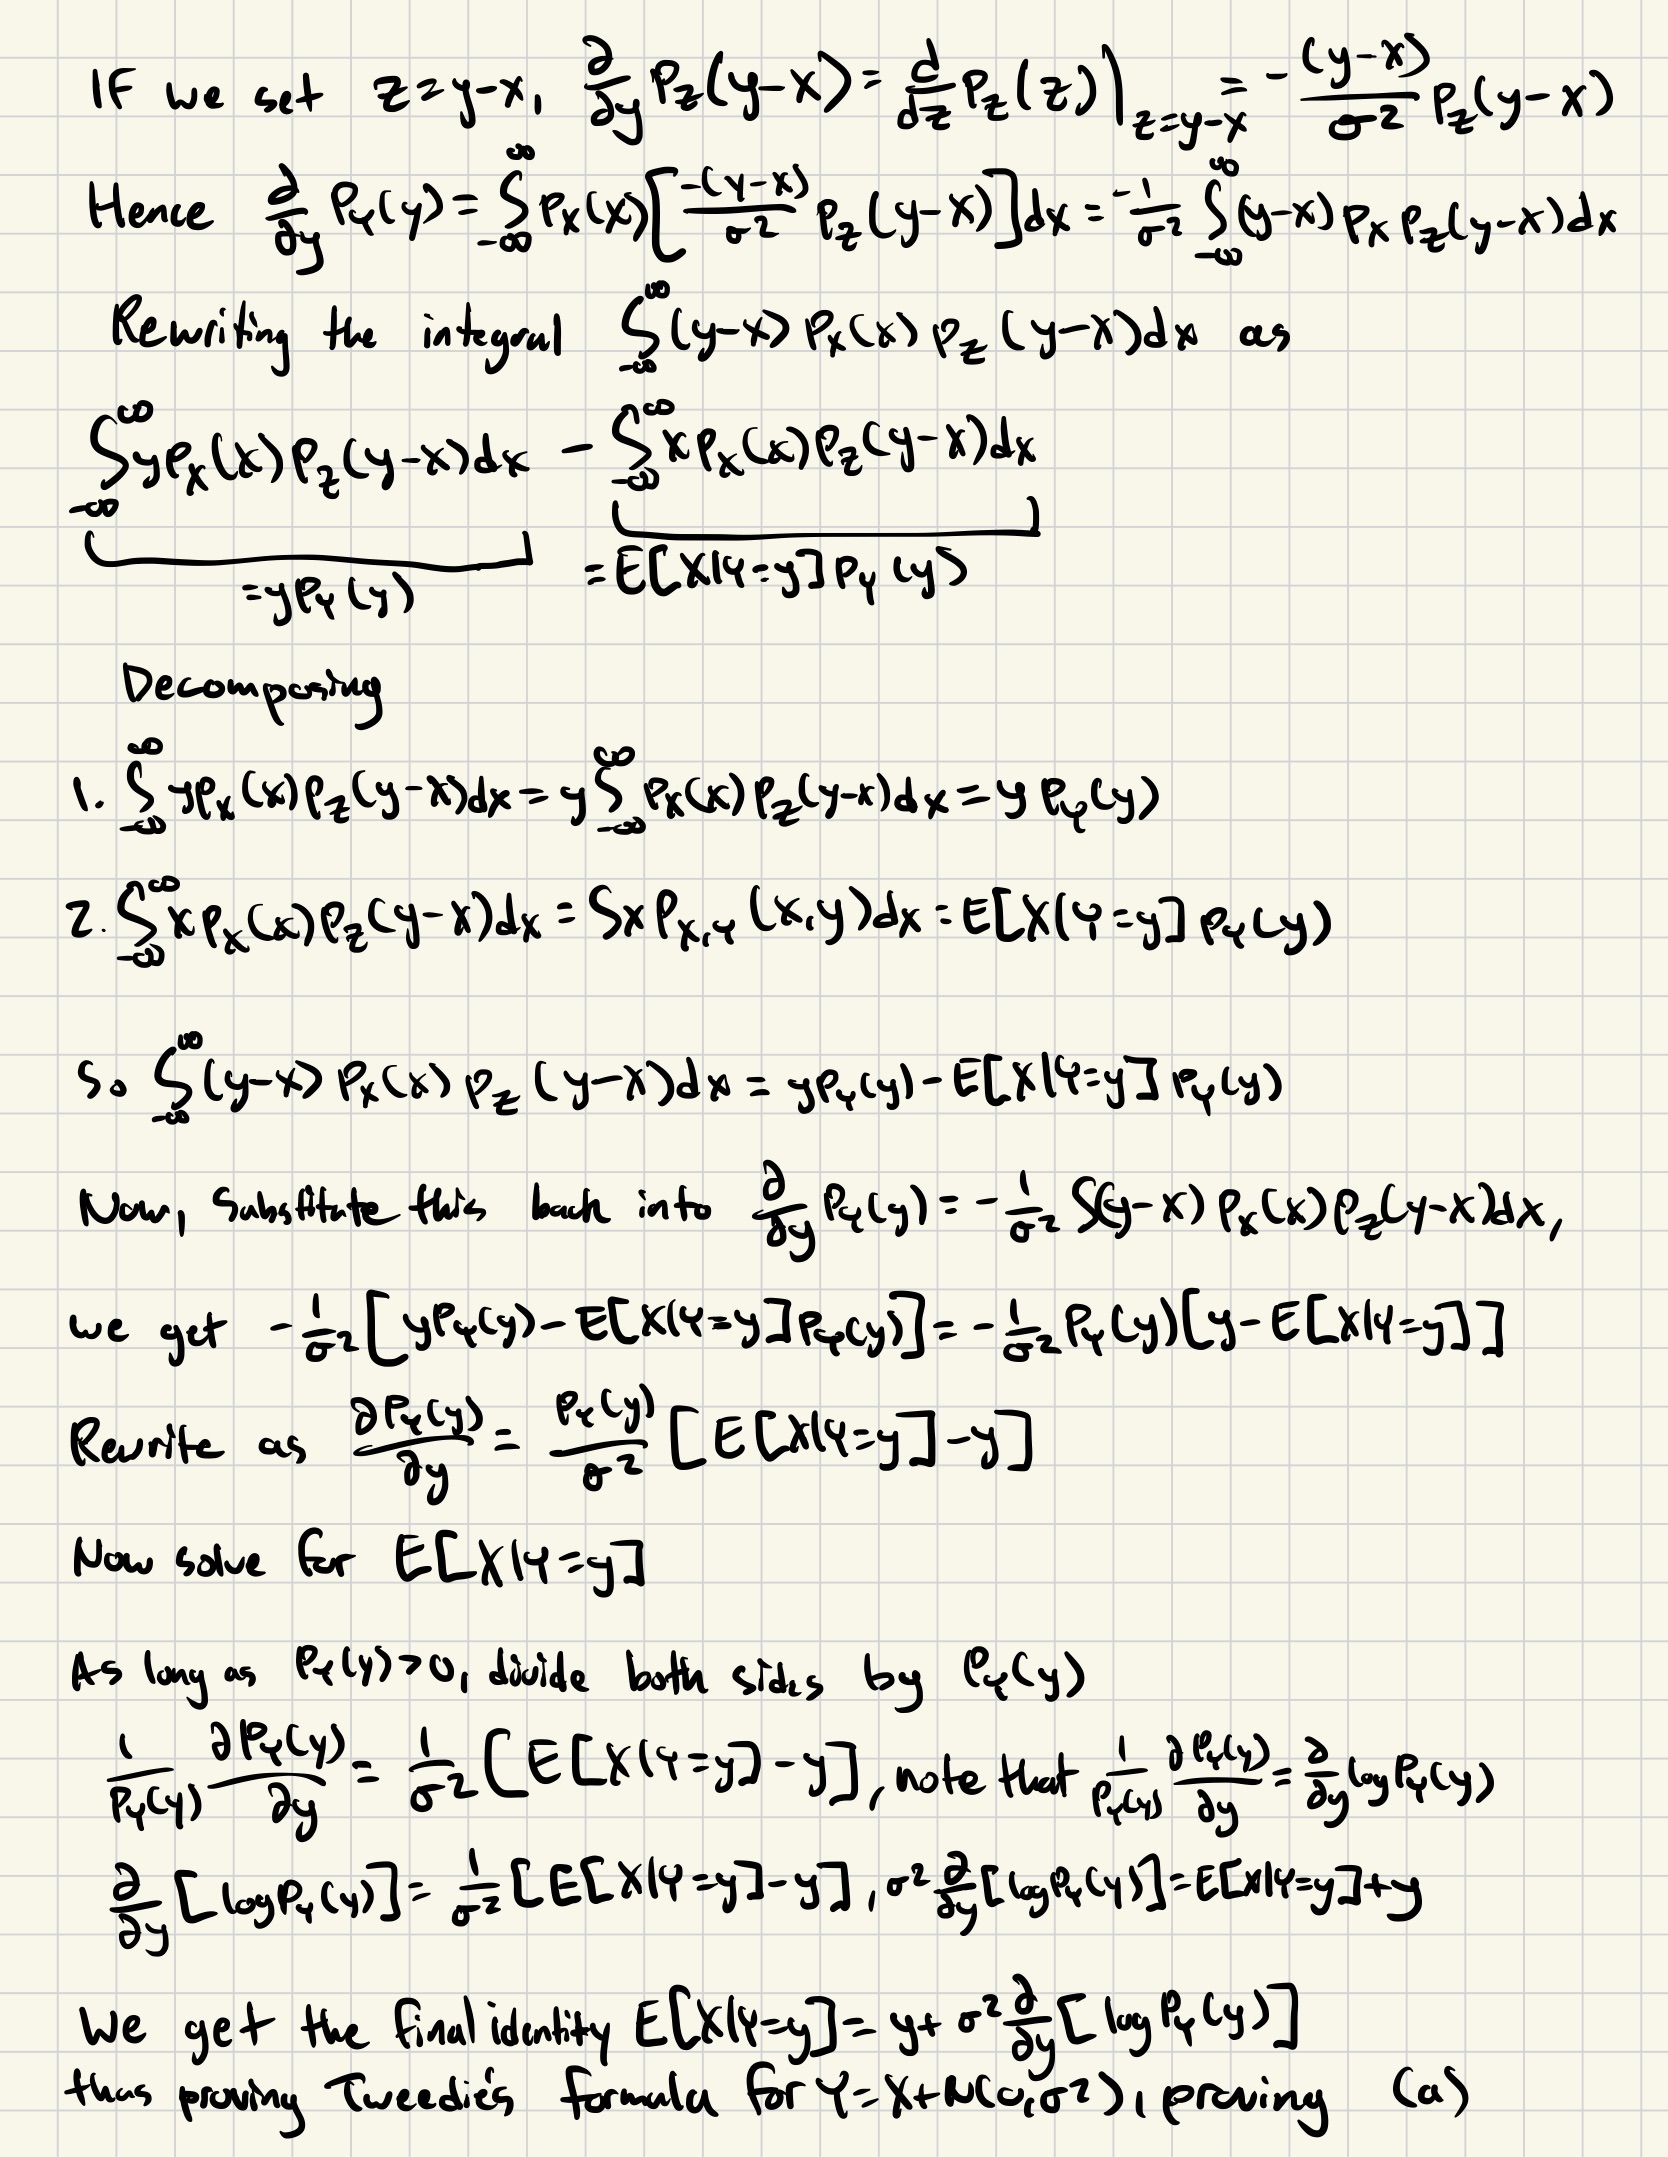 IF we set z=y-x, ∂/∂y P_Z(y-x) = d/dz P_Z(z)|_{z=y-x} = -(y-x)/σ² P_Z(y-x)
Hence ∂/∂y P_Y(y) = ∫_{-∞}^{∞} P_X(x)[-(y-x)/σ² P_Z(y-x)]dx = -1/σ² ∫_{-∞}^{∞} (y-x) P_X P_Z(y-x)dx
Rewriting the integral ∫_{-∞}^{∞} (y-x) P_X(x) P_Z(y-x)dx as
∫_{-∞}^{∞} yP_X(x)P_Z(y-x)dx - ∫_{-∞}^{∞} xP_X(x)P_Z(y-x)dx
=yP_Y(y) =E[X|Y=y]P_Y(y)
Decomposing
1. ∫_{-∞}^{∞} yP_X(x)P_Z(y-x)dx = y∫_{-∞}^{∞} P_X(x)P_Z(y-x)dx = yP_Y(y)
2. ∫_{-∞}^{∞} xP_X(x)P_Z(y-x)dx = ∫xP_{X,Y}(x,y)dx = E[X|Y=y]P_Y(y)
So ∫_{-∞}^{∞} (y-x) P_X(x) P_Z(y-x)dx = yP_Y(y) - E[X|Y=y]P_Y(y)
Now, Substitute this back into ∂/∂y P_Y(y) = -1/σ² ∫(y-x) P_X(x)P_Z(y-x)dx,
we get -1/σ² [yP_Y(y) - E[X|Y=y]P_Y(y)] = -1/σ² P_Y(y)[y - E[X|Y=y]]
Rewrite as ∂P_Y(y)/∂y = P_Y(y)/σ² [E[X|Y=y] - y]
Now solve for E[X|Y=y]
As long as P_Y(y)>0, divide both sides by P_Y(y)
1/P_Y(y) ∂P_Y(y)/∂y = 1/σ² [E[X|Y=y] - y], note that 1/P_Y(y) ∂P_Y(y)/∂y = ∂/∂y log P_Y(y)
∂/∂y [log P_Y(y)] = 1/σ² [E[X|Y=y] - y], σ² ∂/∂y [log P_Y(y)] = E[X|Y=y] + y
We get the final identity E[X|Y=y] = y + σ² ∂/∂y [log P_Y(y)]
thus proving Tweedie's formula for Y=X+N(0,σ²), proving (a)